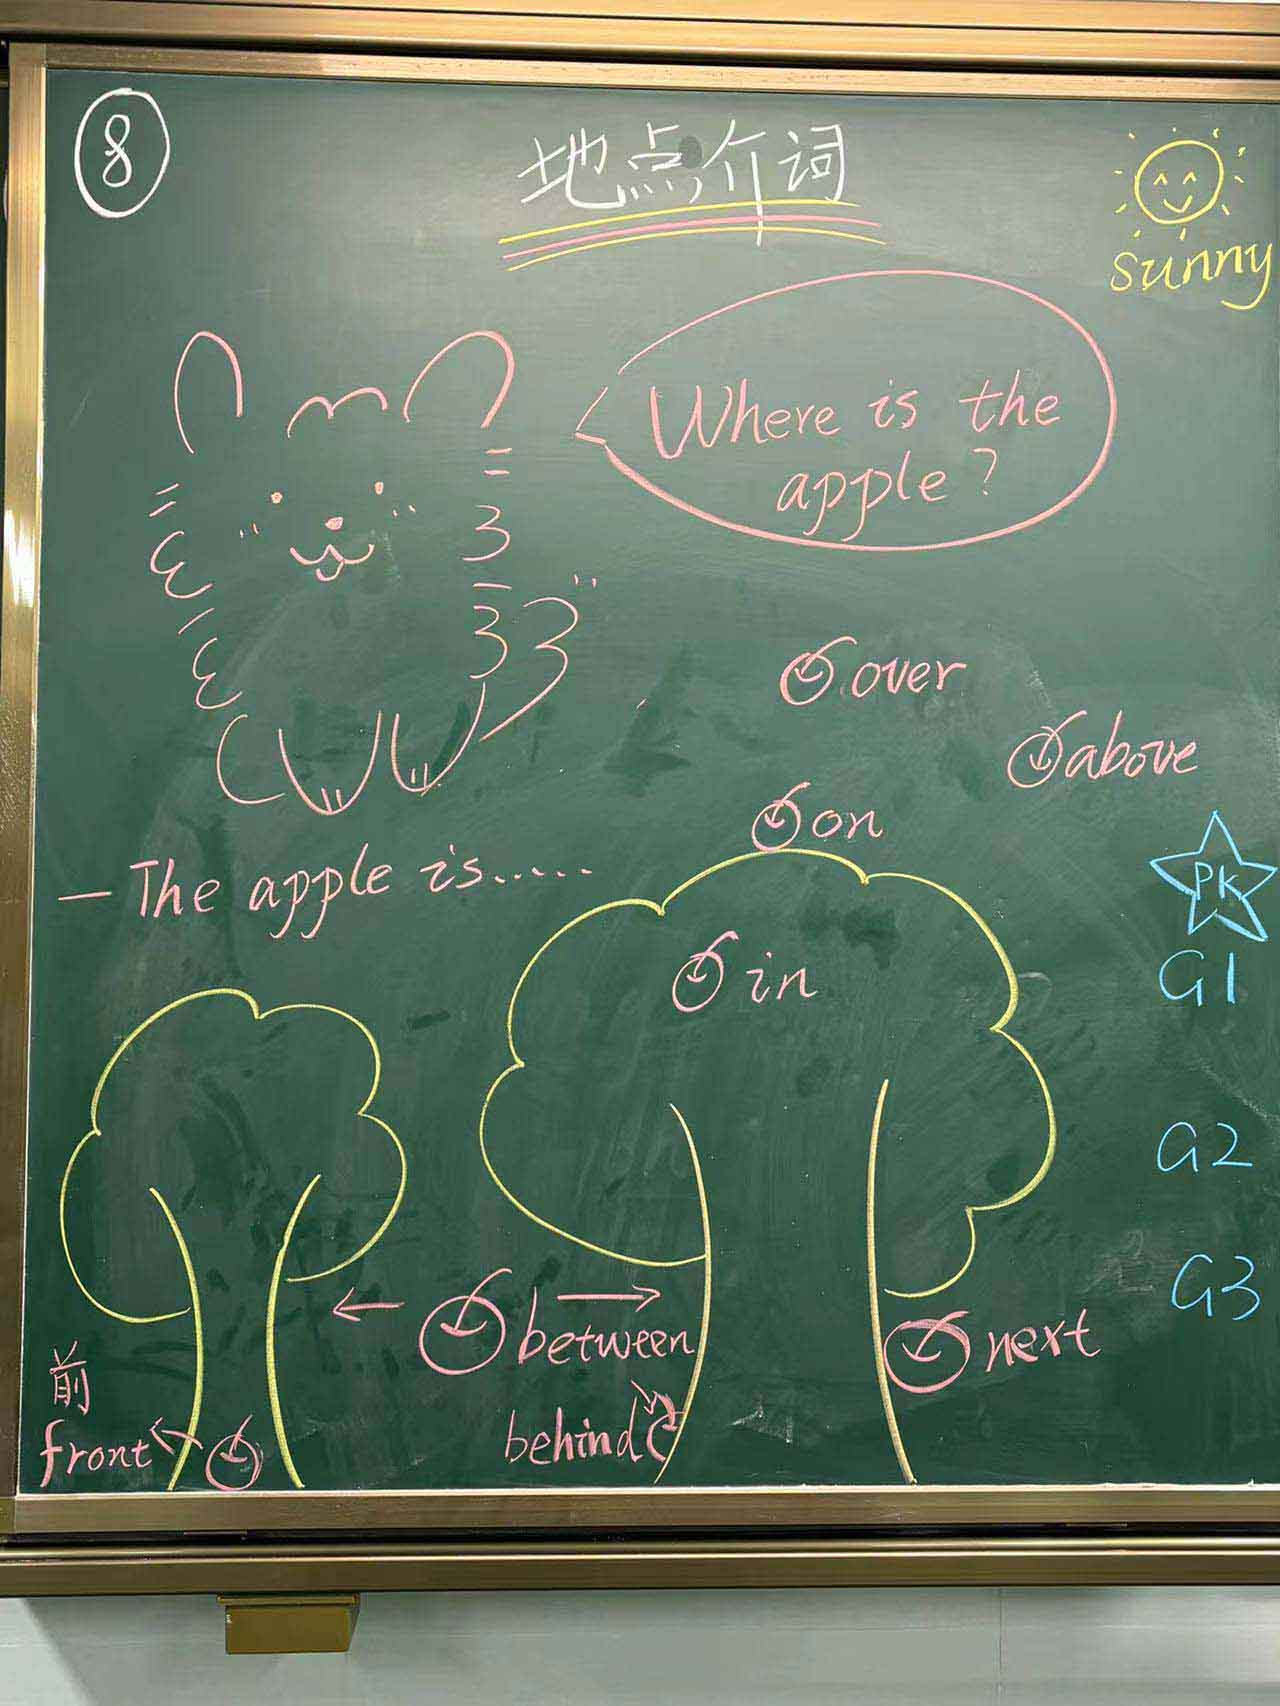 8
地点介词
sunny
Where is the
apple?
over
above
on
— The apple is.....
PK
in
G1
G2
G3
between
next
前
front
behind